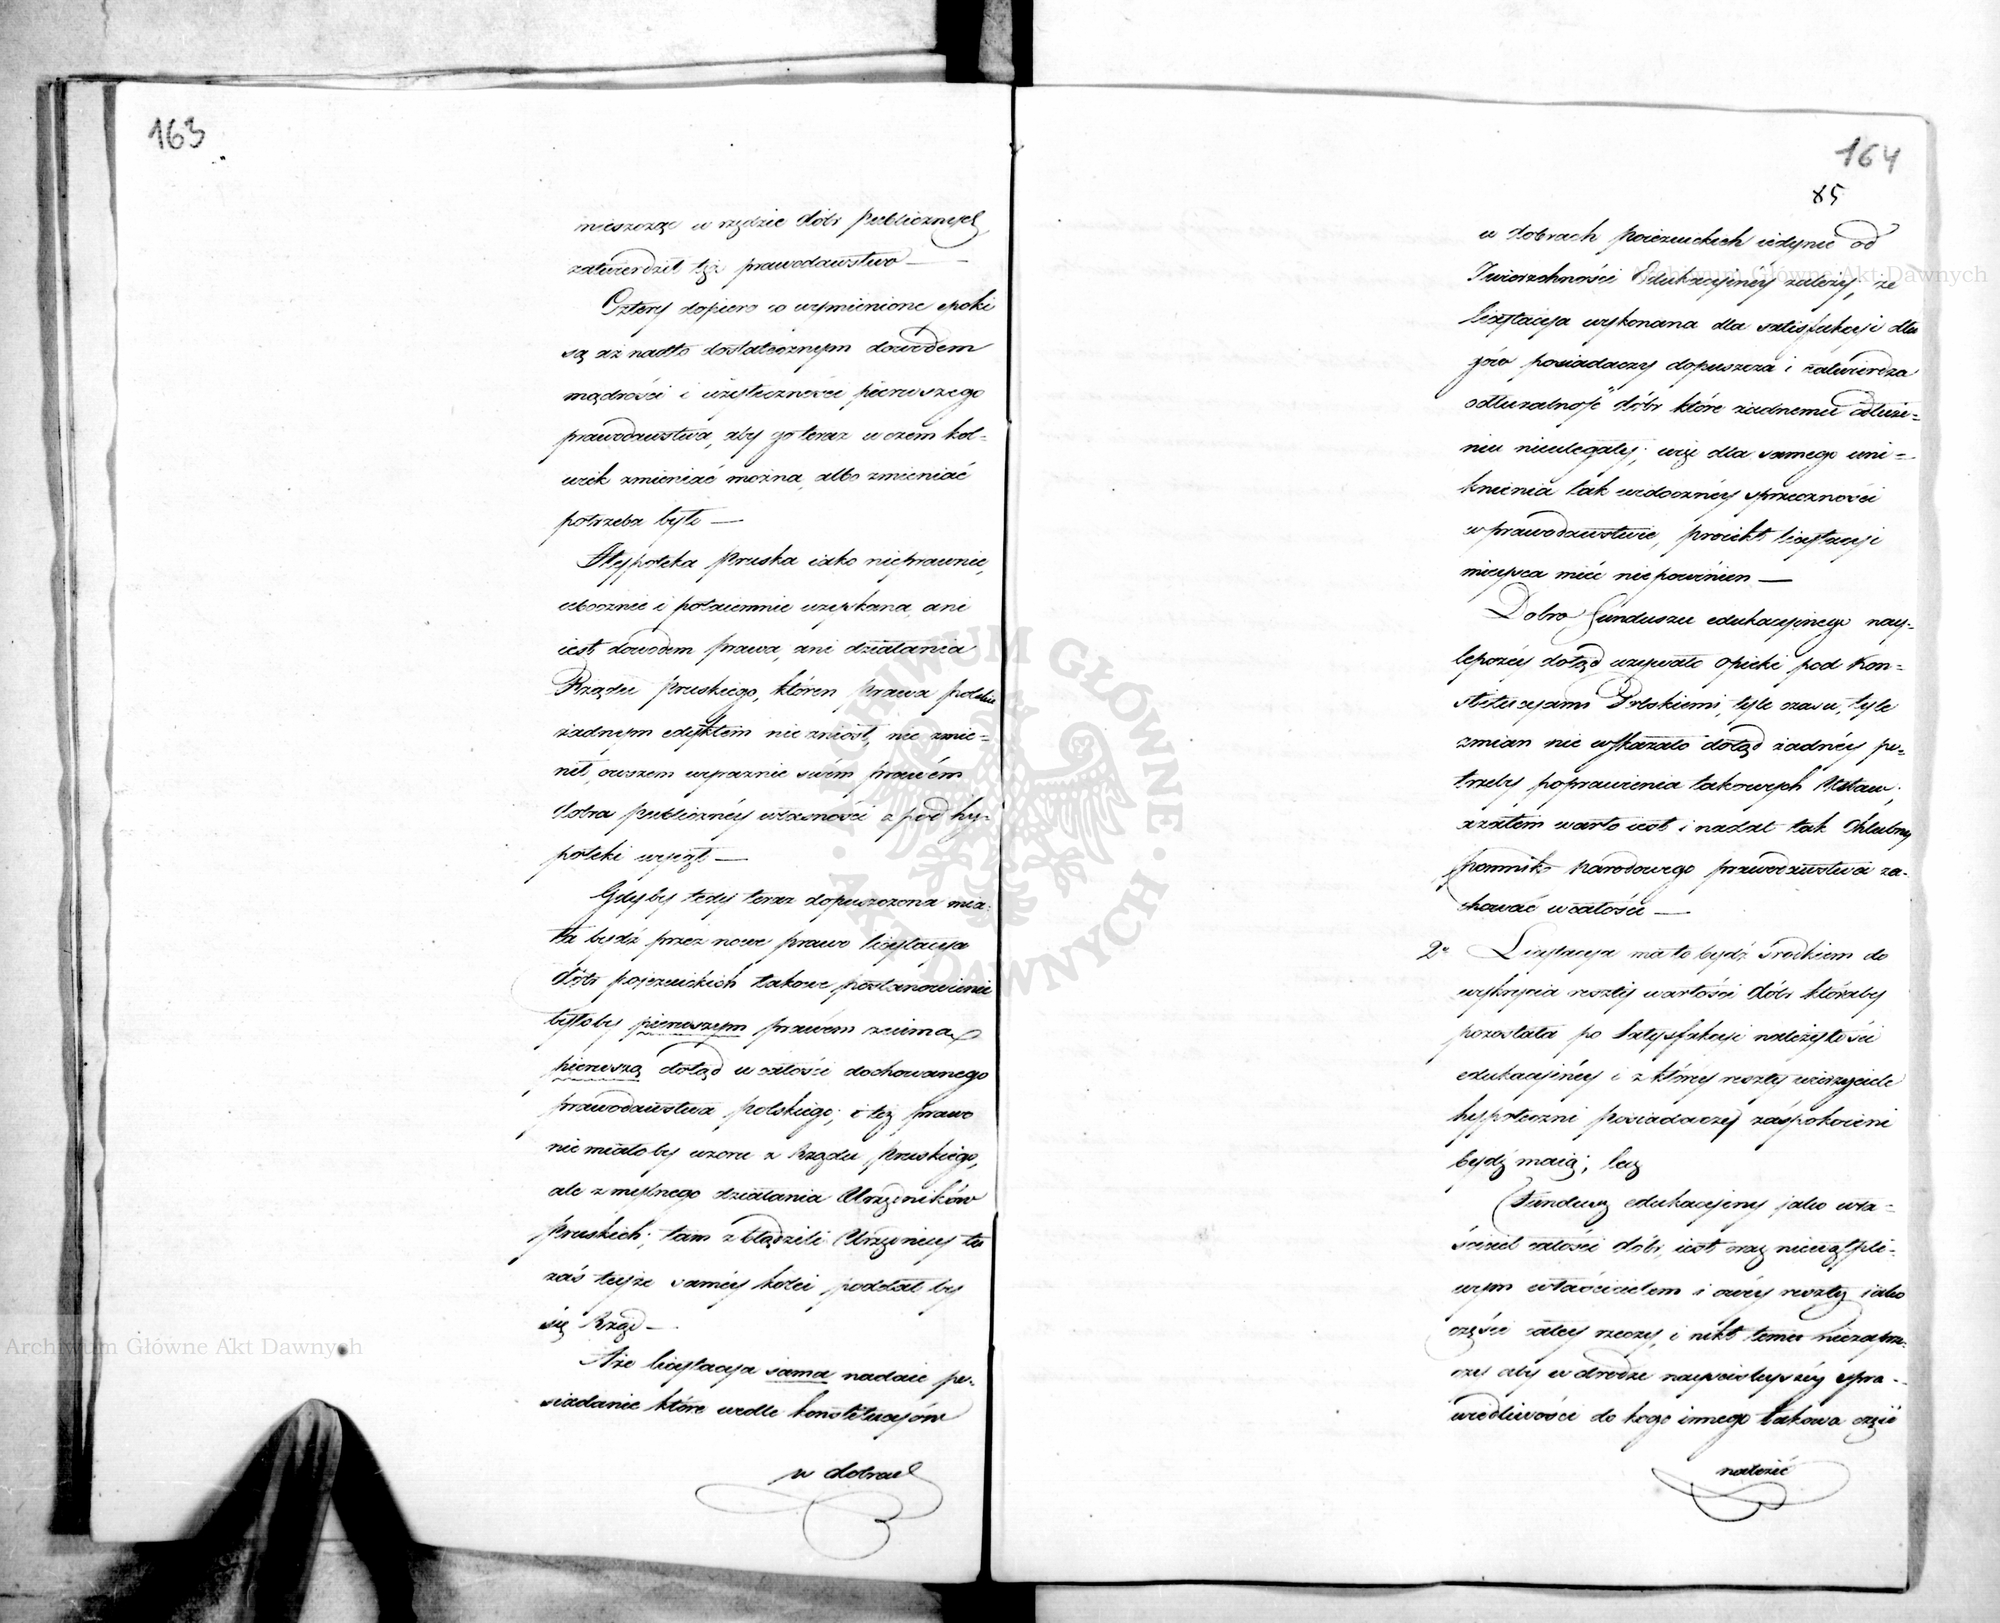 163
mieszcząc w rzędzie dóbr Publicznych
zatwierdził też prawodawstwo —
Cztery dopiero co wymienione epoki
są aż nadto dostatecznym dowodem
mądrości i użyteczności pierwszego
prawodawstwa, aby go teraz w czem kol-
wiek zmieniać można albo zmieniać
potrzeba było —
Hypoteka Pruska iako nieprawnie,
ubocznie i potaiemnie uzyskana, ani
iest dowodem prawa, ani działania
Rządu Pruskiego, któren Prawa polskie
żadnym edyktem nie zniósł, nie zmie-
nił, owszem wyraznie swém prawém
dobra publicznéy własności z pod hy-
poteki wyjął —
Gdyby tedy teraz dopuszczona mia-
ła bydź przez nowe prawo licytacya
dóbr pojezuickich takowe postanowienie
byłoby pierwszym prawém
pierwszą dotąd w całości dochowanego
prawodawstwa polskiego; i też prawo
nie miałoby wzoru z Rządu Pruskiego,
ale z mylnego działania Urzędników
Pruskich; tam zbłądzili Urzędnicy tu
zaś teyże saméy kolei poddał by
się Rząd —
Aże licytacya sama nadaie po-
siadanie które wedle konstytucyów
w dobrach
164
85
w dobrach poiezuickich iedynie od
Zwierzchności Edukacyinéy zależy, że
licytacya wykonana dla satisfakcyi dłu
gów posiadaczy dopuszcza i zatwierdza
odłużalność dóbr które żadnemu odłuże-
niu nieulegały; więc dla samego uni-
knienia tak widocznéy sprzeczności
w prawodawstwie, proiekt licytacyi
mieysca mieć niepowinien —
Dobro funduszu edukacyinego nay-
lepszéy dotąd używało opieki pod kon-
stytucyami Polskiemi, tyle czasu, tyle
zmian nie wykazało dotąd żadnéy po-
trzeby poprawienia takowych Ustaw;
a zatém warto iest i nadal tak chlubny
pomnik Narodowego prawodawstwa za-
chować w całości —
2° Licytacya ma to bydź środkiem do
wykrycia reszty wartości dóbr któraby
pozostała po satysfakcyi należytości
edukacyinéy i z któréy reszty wierzyciele
hypoteczni Posiadaczéy zaspokoieni
bydź maią; lecz
Fundusz edukacyiny jako wła-
ściciel całości dóbr, iest oraz niewątpli-
wym właścicielem i owéy reszty iako
części całéy rzeczy, i nikt temu niezaprze-
czy aby w drodze nayściśleyszéy spra-
wiedliwości do kogo innego takowa część
należeć
ARCHIWUM GŁÓWNE AKT DAWNYCH
Archiwum Główne Akt Dawnych
Archiwum Główne Akt Dawnych